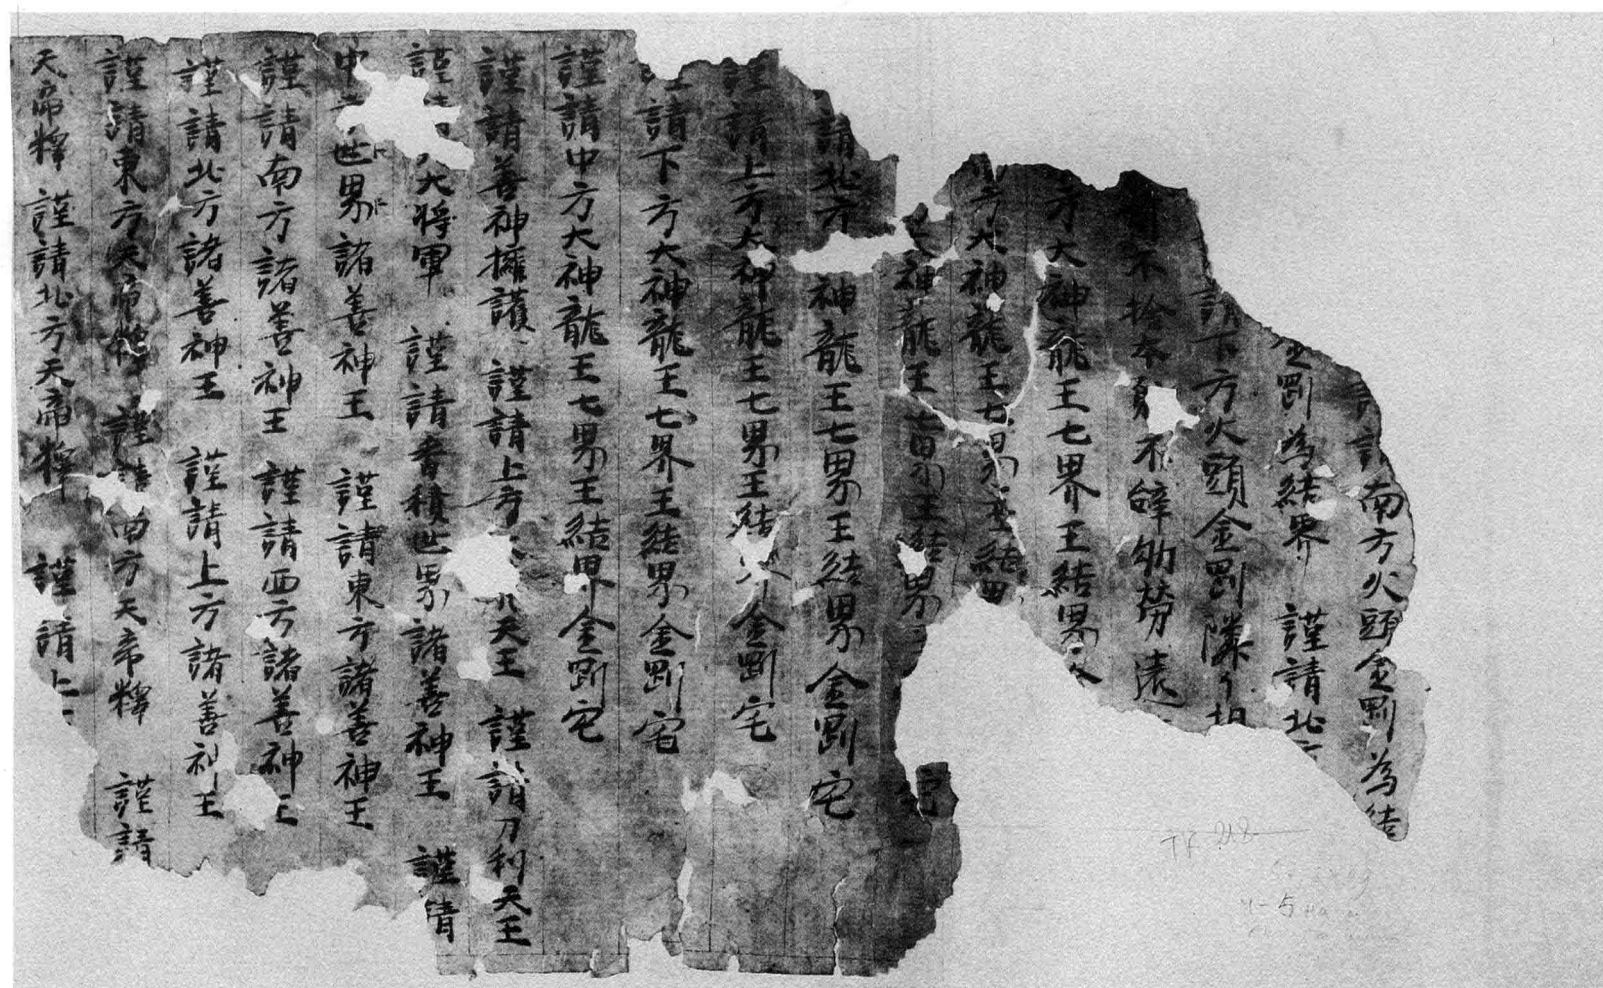 請南方火頭金剛為結
金剛為結界 謹請北方
請下方火頭金剛隣
不捨本 不辞劬勞遠
方大神龍王七界王結界
方大神龍王七界王結界
大神龍王七界王結界 宅
請北方 神龍王七界王結界金剛宅
謹請上方大神龍王七界王結 金剛宅
請下方大神龍王七界王結界金剛宅
謹請中方大神龍王七界王結界金剛宅
謹請善神擁護 謹請上方 天王 謹請刀利天王
謹 大将軍 謹請香積世界諸善神王 謹請
中 世界諸善神王 謹請東方諸善神王
謹請南方諸善神王 謹請西方諸善神王
謹請北方諸善神王 謹請上方諸善神王
謹請東方天帝釋 謹請南方天帝釋 謹請
天帝釋 謹請北方天帝釋 謹請上